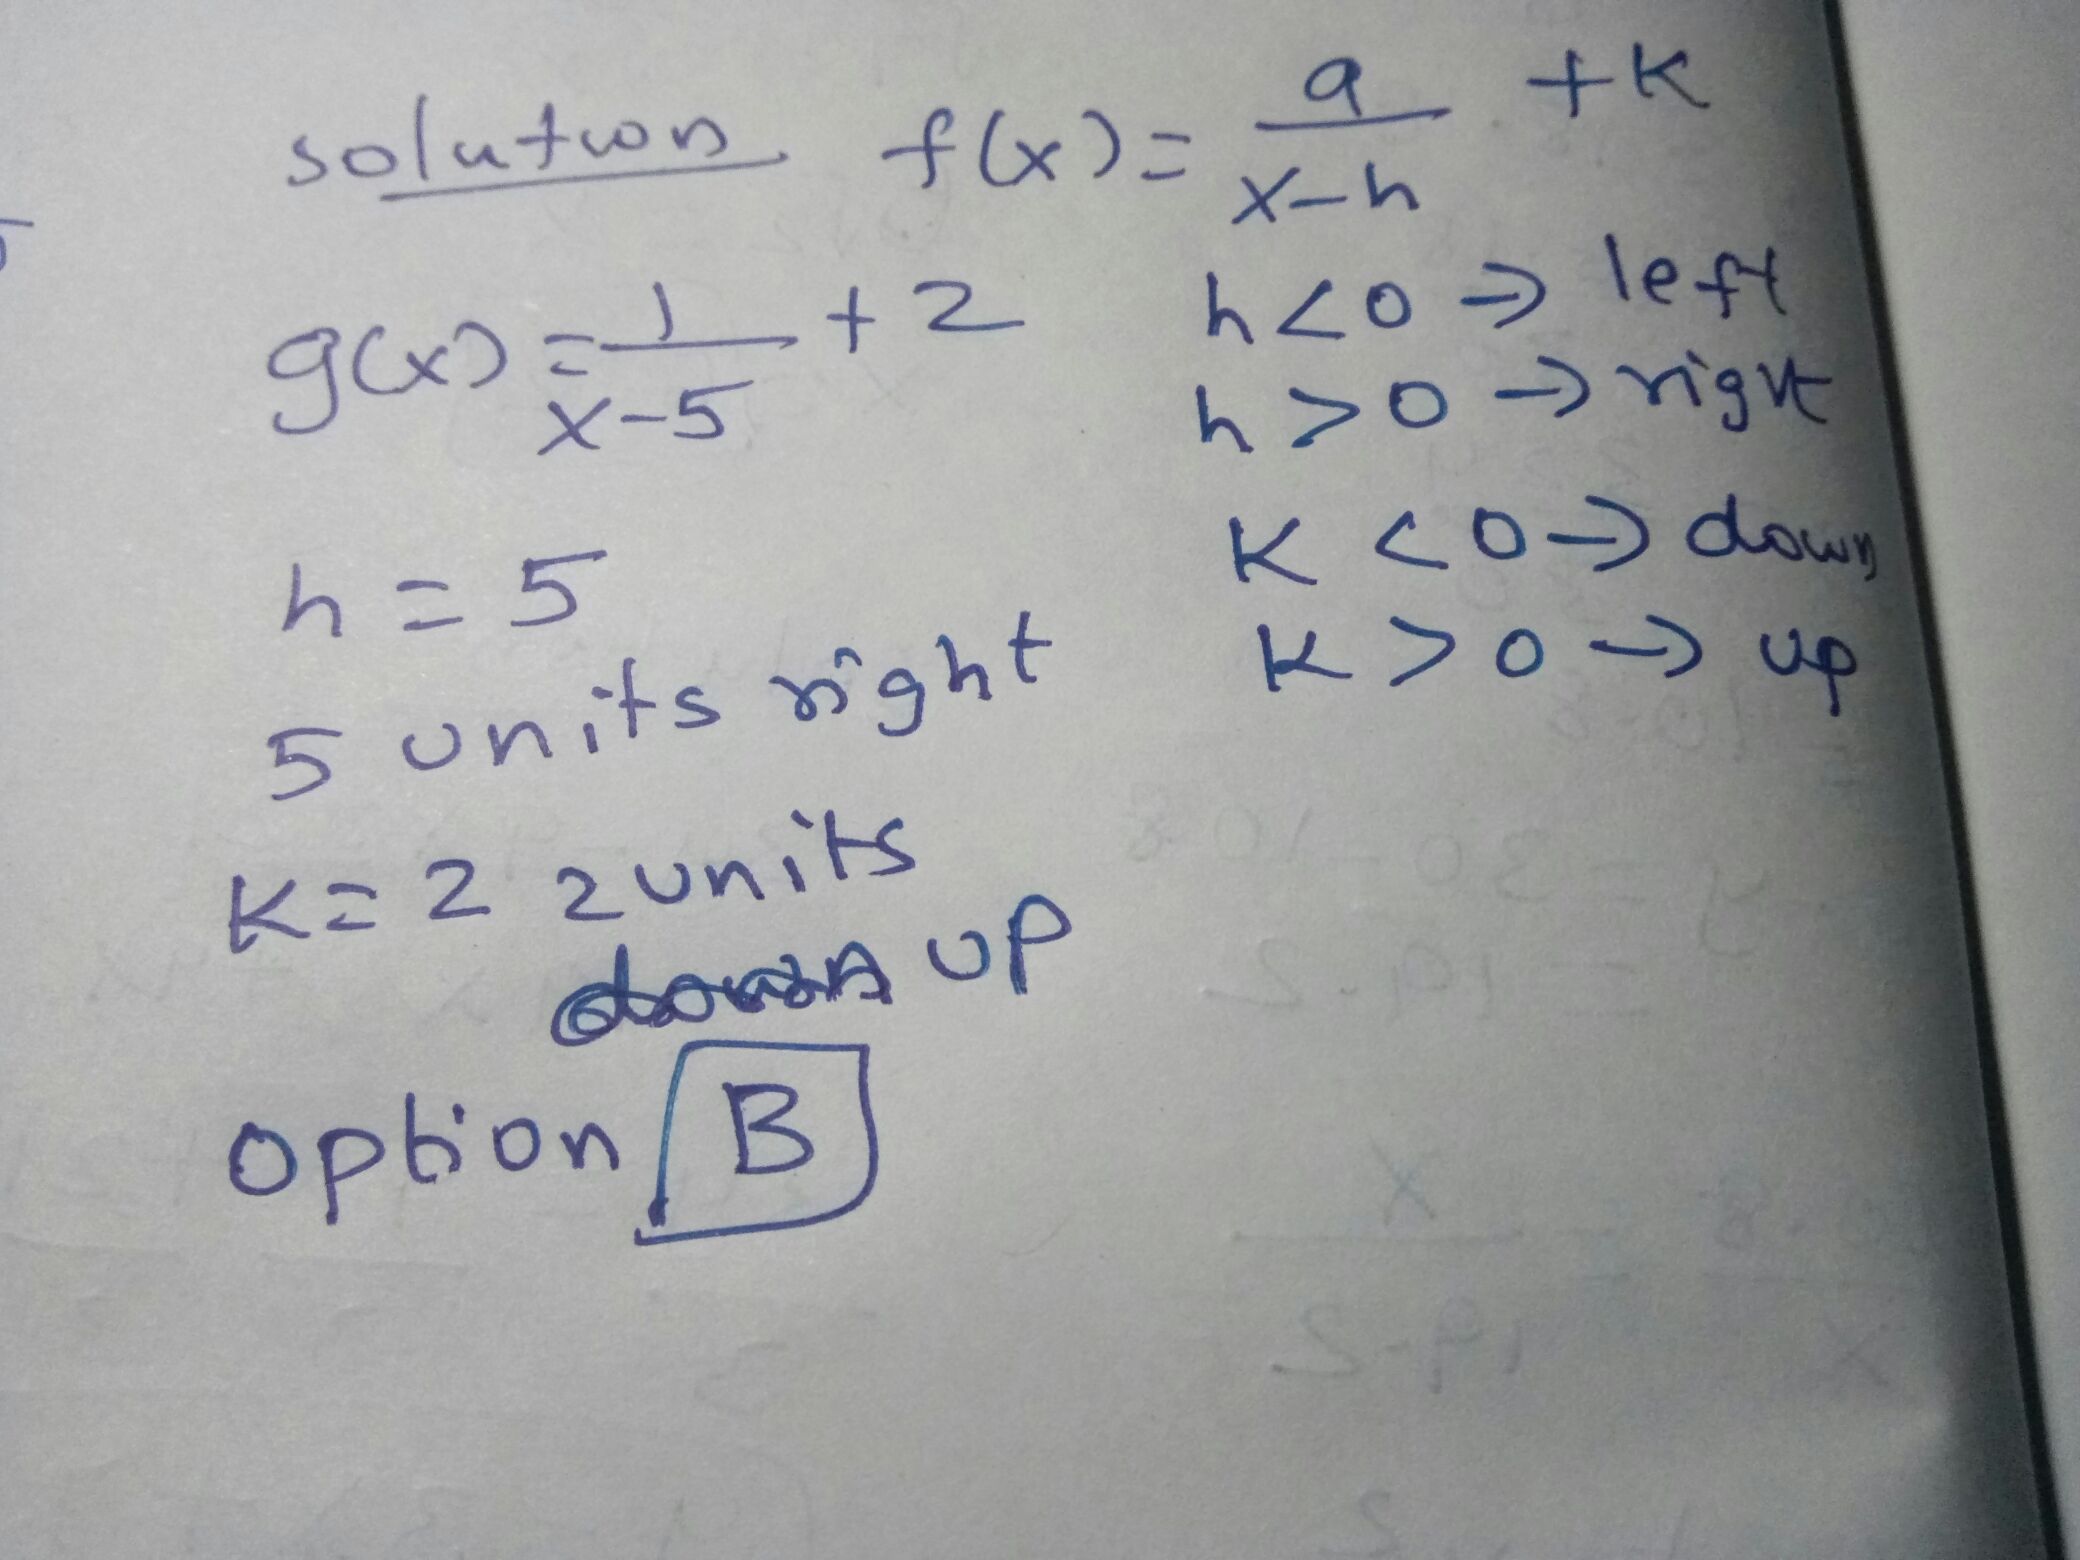 solution f(x) = a/x-h + K
g(x) = 1/x-5 + 2
h<0 → left
h>0 → right
K<0 → down
K>0 → up
h = 5
5 units right
K = 2 2 units
up
option B